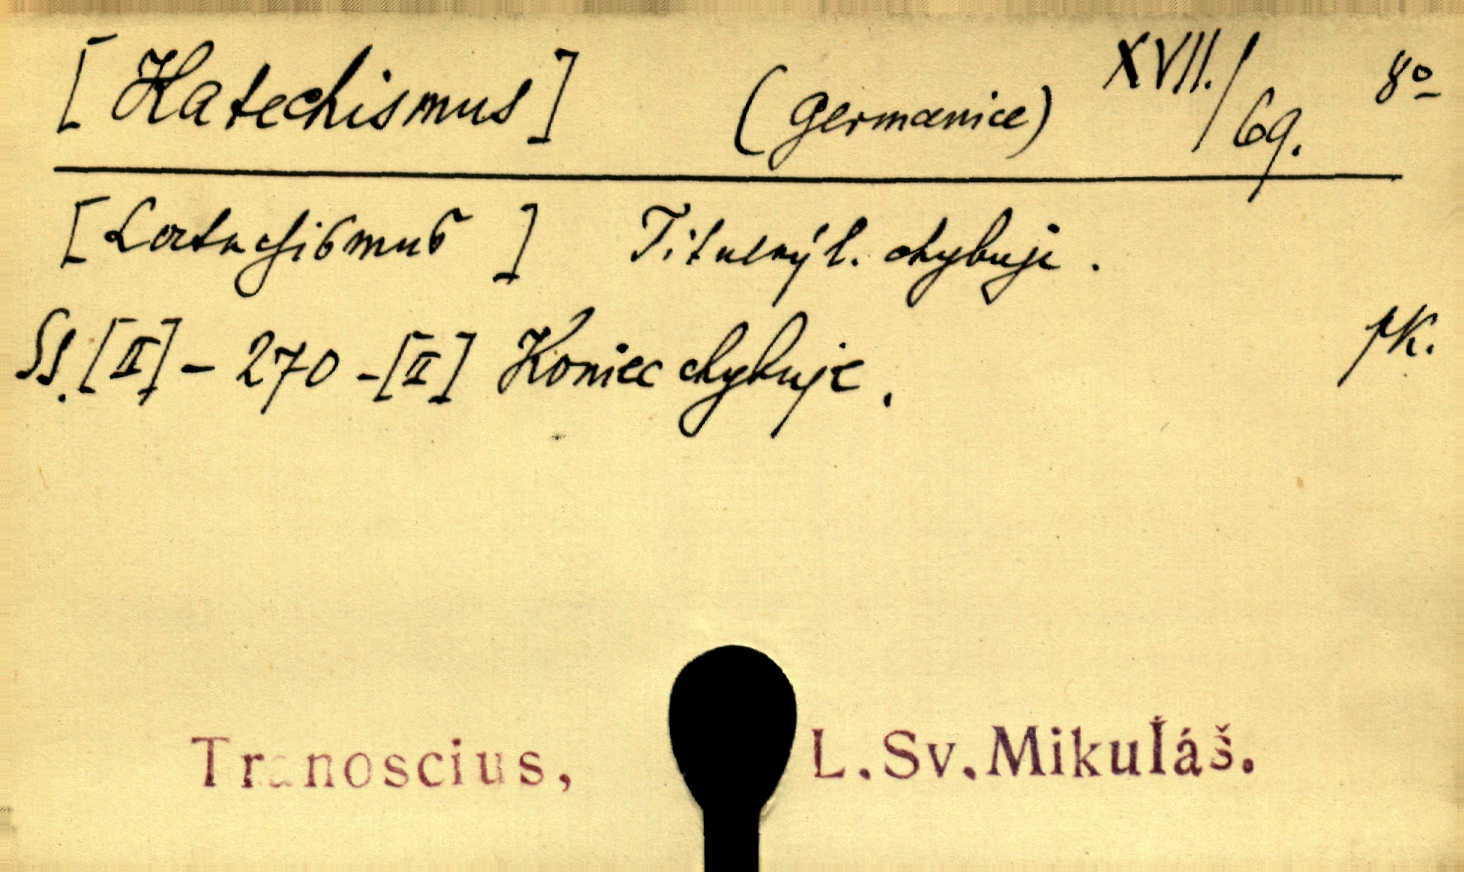 [Katechismus] (germanice) XVII./69. 8º
[Catechismus] Titulný l. chybuje.
SS. [II] - 270 - [II] Koniec chybuje. pK.
Tranoscius, L. Sv. Mikuláš.